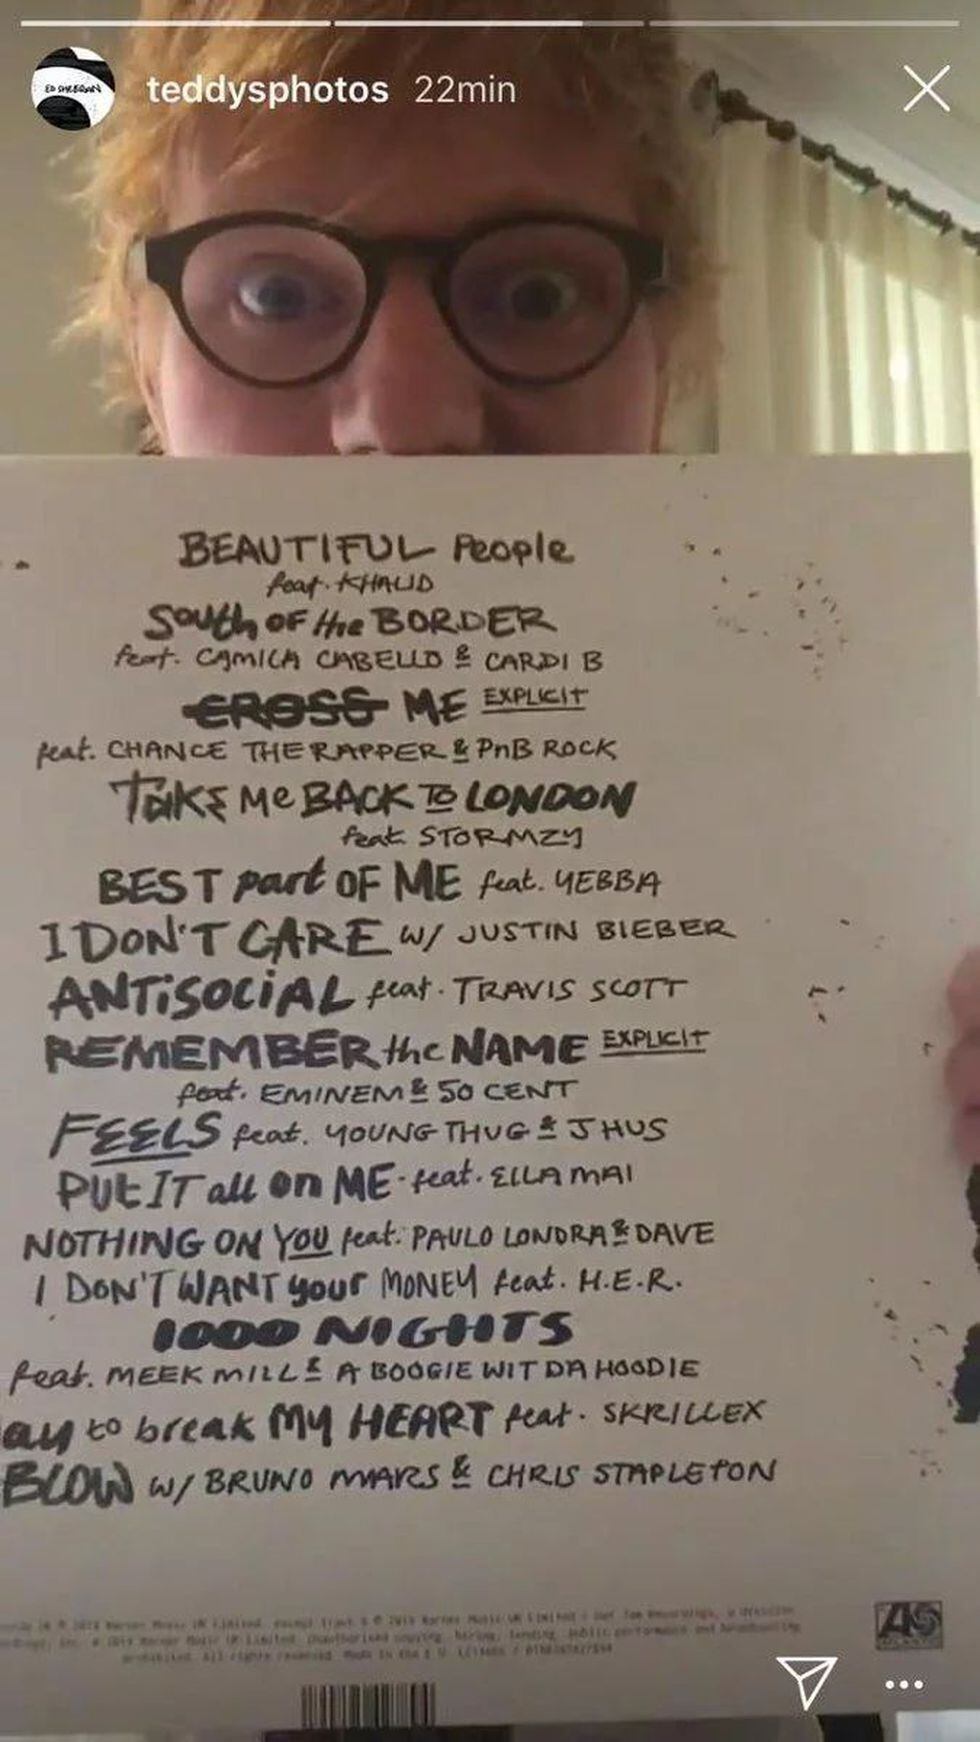 ED SHEERAN
teddysphotos 22min
BEAUTIFUL People
feat. KHALID
South OF the BORDER
feat. CAMILA CABELLO & CARDI B
CROSS ME EXPLICIT
feat. CHANCE THE RAPPER & PnB ROCK
TaKE Me BACK TO LONDON
feat. STORMZY
BEST part OF ME feat. YEBBA
I DON'T CARE w/ JUSTIN BIEBER
ANTiSOCiAL feat. TRAVIS SCOTT
REMEMBER the NAME EXPLICIT
feat. EMINEM & 50 CENT
FEELS feat. YOUNG THUG & J HUS
PUt IT all on ME - feat. ELLA MAI
NOTHING ON YOU feat. PAULO LONDRA & DAVE
I DON'T WANT your MONEY feat. H.E.R.
1000 NIGHTS
feat. MEEK MILL & A BOOGIE WIT DA HOODIE
ay to break MY HEART feat. SKRILLEX
BLOW w/ BRUNO MARS & CHRIS STAPLETON